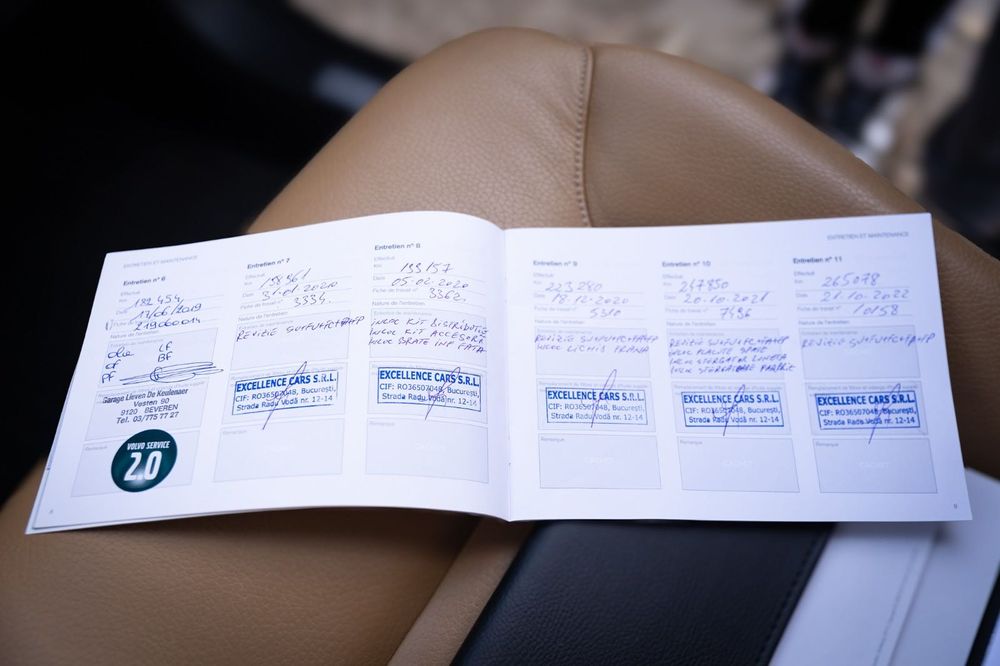 ENTRETIEN ET MAINTENANCE
Entretien n° 6
Effectué
Km 182 454
Date 17/06/2019
Fiche de travail n° 219000014
Nature de l'entretien
olie IF
cf BF
PF
Garage Lieven De Keulenaer
Vesten 90
9120 BEVEREN
Tel. 03/775 77 27
Remarque
VOLVO SERVICE
2.0
8
Entretien n° 7
Effectué
Km 158961
Date 31-01-2020
Fiche de travail n° 3334
Nature de l'entretien
REVIZIE
EXCELLENCE CARS S.R.L.
CIF: RO36507048, București,
Strada Radu Vodă nr. 12-14
Remarque
Entretien n° 8
Effectué
Km 193157
Date 05-02-2020
Fiche de travail n° 3362
Nature de l'entretien
INLOC KIT DISTRIBUTIE
INLOC KIT ACCESORII
INLOC BRATE INF FATA
EXCELLENCE CARS S.R.L.
CIF: RO36507048, București,
Strada Radu Vodă nr. 12-14
Remarque
ENTRETIEN ET MAINTENANCE
Entretien n° 9
Effectué
Km 223 280
Date 18-12-2020
Fiche de travail n° 5310
Nature de l'entretien
REVIZIE
INLOC LICHID FRANA
EXCELLENCE CARS S.R.L.
CIF: RO36507048, București,
Strada Radu Vodă nr. 12-14
Remarque
Entretien n° 10
Effectué
Km 247850
Date 20-10-2021
Fiche de travail n° 7496
Nature de l'entretien
REVIZIE
INLOC PLACUTE SPATE
INLOC STERGATOR LUNETA
INLOC STERGATOARE PARBRIZ
EXCELLENCE CARS S.R.L.
CIF: RO36507048, București,
Strada Radu Vodă nr. 12-14
Remarque
Entretien n° 11
Effectué
Km 265078
Date 21-10-2022
Fiche de travail n° 10158
Nature de l'entretien
REVIZIE
EXCELLENCE CARS S.R.L.
CIF: RO36507048, București,
Strada Radu Vodă nr. 12-14
Remarque
9